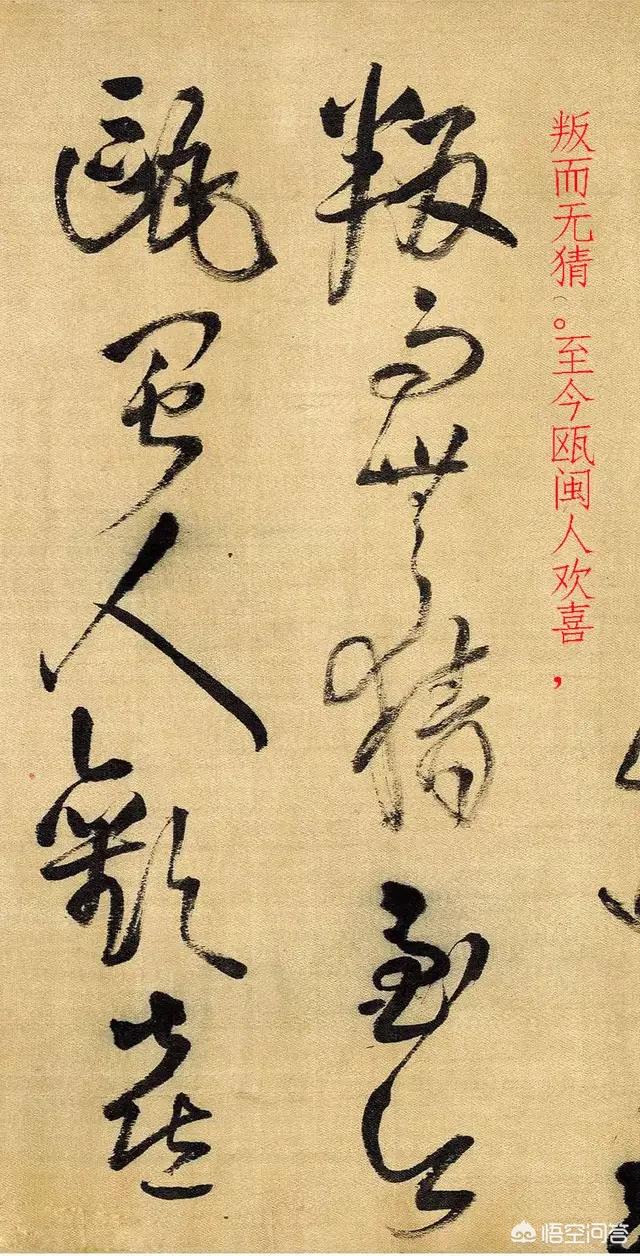 叛而无猜（。至今瓯闽人欢喜，
叛而無猜至今
甌閩人歡喜
悟空问答